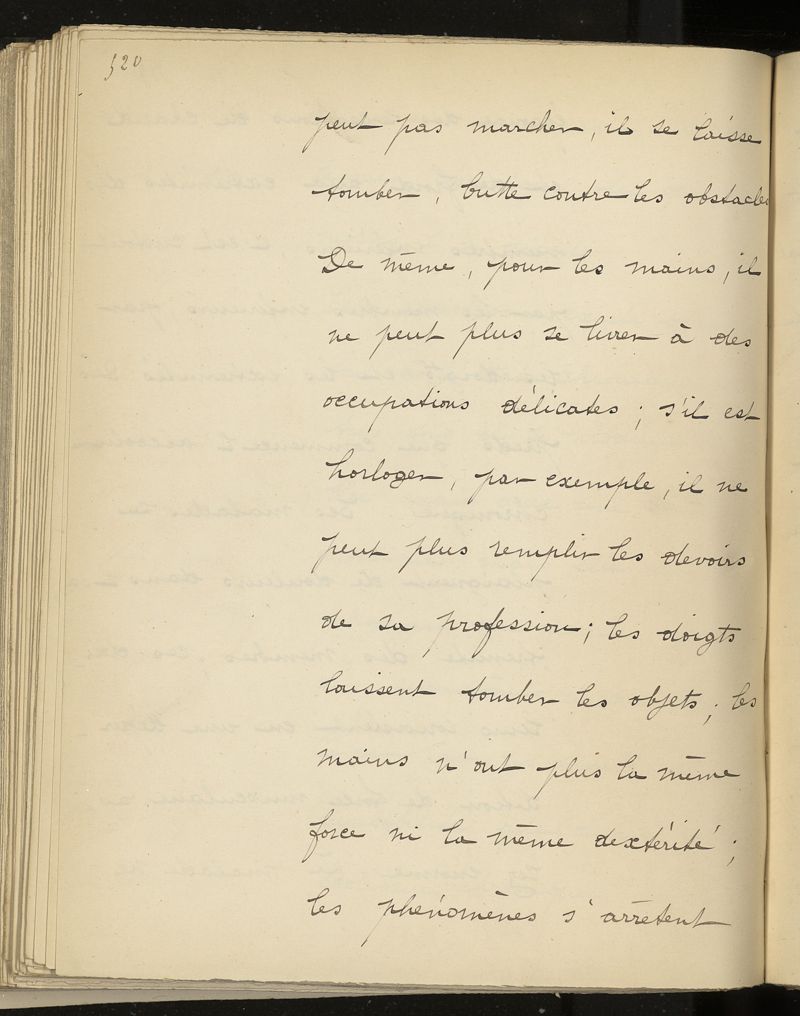 520
peut pas marcher, il se laisse
tomber, butte contre les obstacles
De même, pour les mains, il
ne peut plus se livrer à des
occupations délicates ; s'il est
horloger, par exemple, il ne
peut plus remplir les devoirs
de sa profession ; les doigts
laissent tomber les objets ; les
mains n'ont plus la même
force ni la même dextérité ;
les phénomènes s'arrêtent